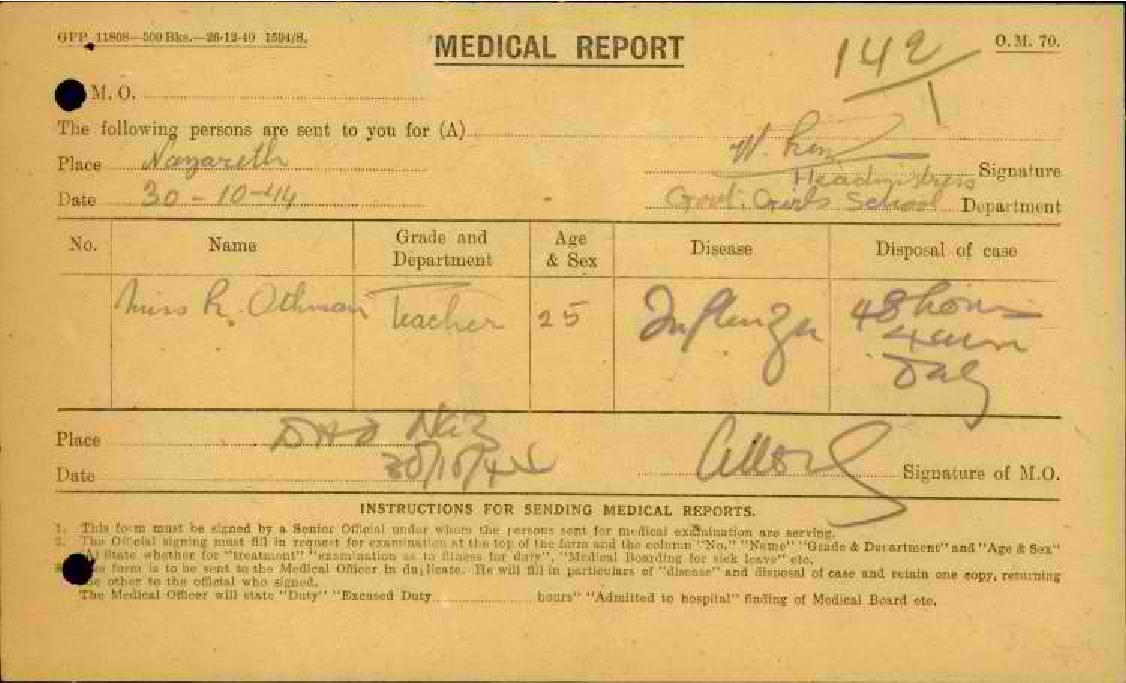 GPP. 11808—500 Bks.—26-12-40 1594/8.
MEDICAL REPORT
142/1
O. M. 70.
M. O.
The following persons are sent to you for (A)
Place Nazareth
Signature
Headmistress
Date 30-10-44
Govt. Girls School Department
No. Name Grade and Department Age & Sex Disease Disposal of case
Miss R. Othman Teacher 25 Influenza 48 hours
Place Naz
Date 30/10/44
Signature of M.O.
INSTRUCTIONS FOR SENDING MEDICAL REPORTS.
1. This form must be signed by a Senior Official under whom the persons sent for medical examination are serving.
2. The Official signing must fill in request for examination at the top of the form and the column "No." "Name" "Grade & Department" and "Age & Sex"
A) State whether for "treatment" "examination as to fitness for duty", "Medical Boarding for sick leave" etc.
form is to be sent to the Medical Officer in duplicate. He will fill in particulars of "disease" and disposal of case and retain one copy, returning
other to the official who signed.
The Medical Officer will state "Duty" "Excused Duty hours" "Admitted to hospital" finding of Medical Board etc.